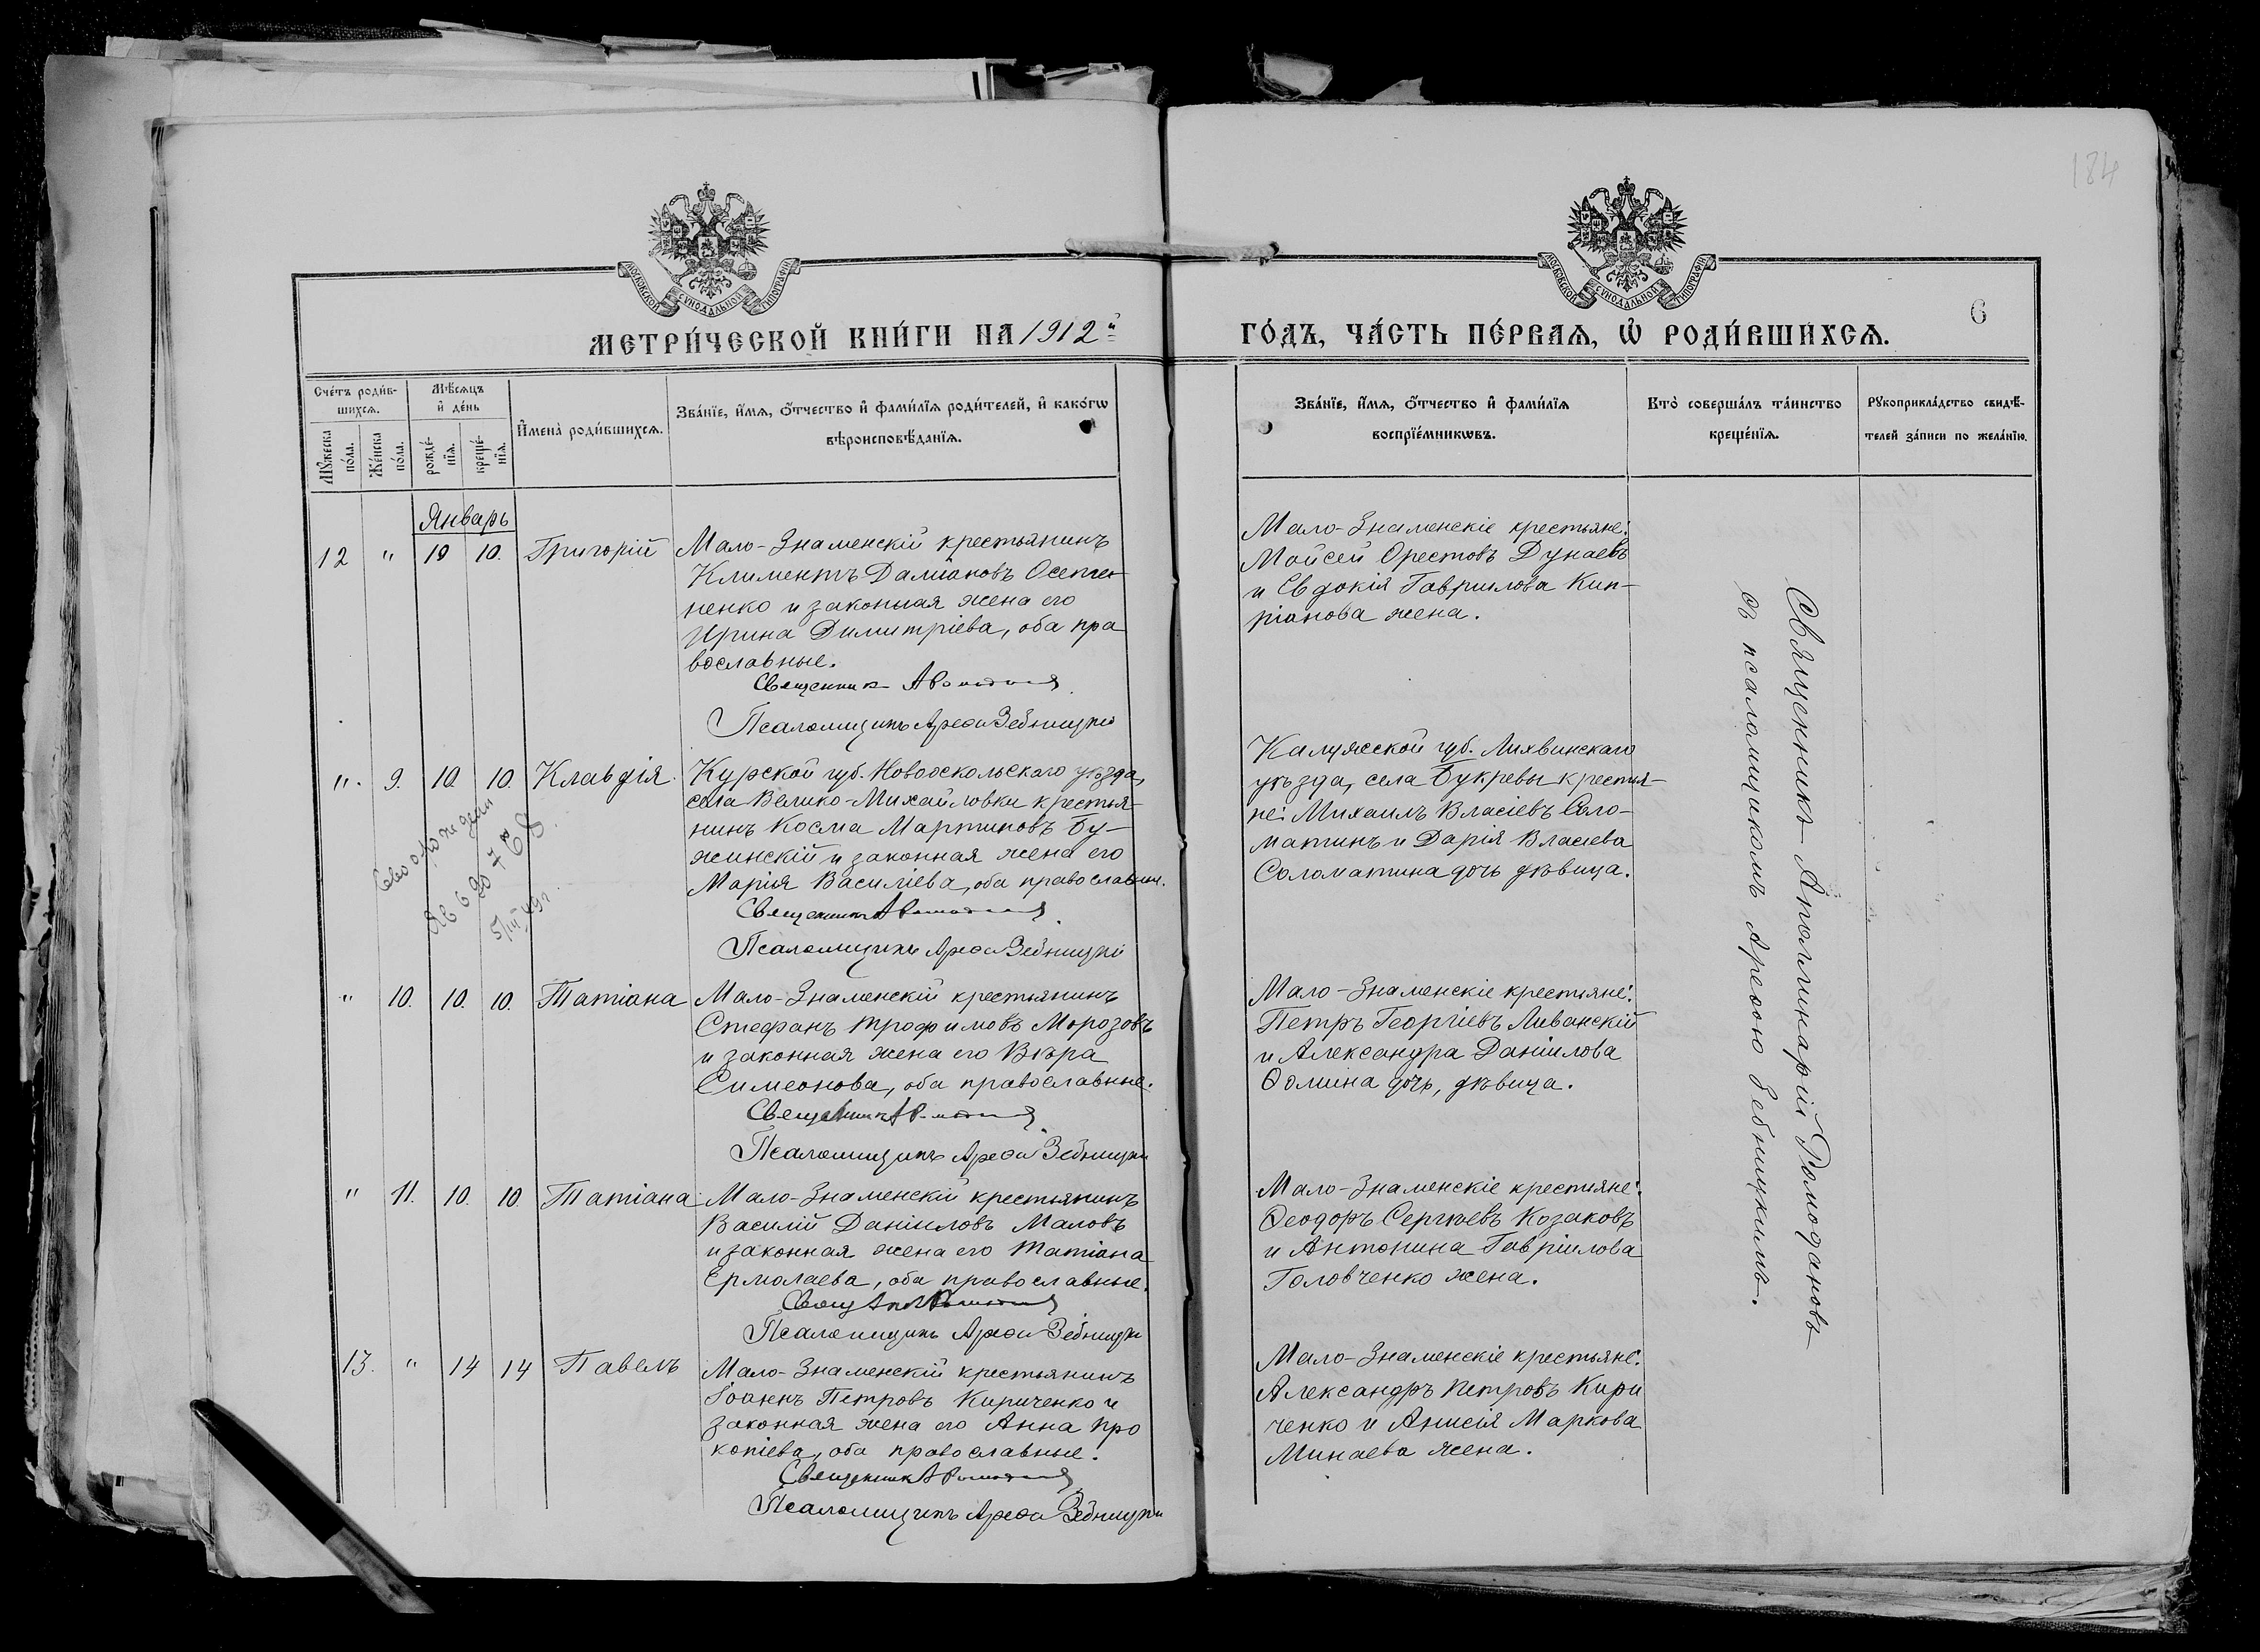 184
6
МОСКОВСКОЙ СѴНОДАЛЬНОЙ ТИПОГРАФІИ
МОСКОВСКОЙ СѴНОДАЛЬНОЙ ТИПОГРАФІИ
МЕТРИ́ЧЕСКОЙ КНИ́ГИ НА 1912й
ГО́ДЪ, ЧА́СТЬ ПЕ́РВАѦ, Ѡ҆ РОДИ́ВШИХСѦ.
Сче́тъ роди́в-
шихсѧ.
Мѣ́сѧцъ
и҆ де́нь
Мꙋ́жеска
по́ла.
Же́нска
по́ла.
рожде́-
нїѧ.
креще́-
нїѧ.
И҆мена̀ роди́вшихсѧ.
Зва́нїе, и҆́мѧ, ѻ҆́тчество и҆ фами́лїѧ роди́телей, и҆ како́гѡ
вѣроисповѣ́данїѧ.
Зва́нїе, и҆́мѧ, ѻ҆́тчество и҆ фами́лїѧ
воспрїе́мникѡвъ.
Кто̀ соверша́лъ та́инство
креще́нїѧ.
Рꙋкоприкла́дство свидѣ́-
телей за́писи по жела́нїю.
Январь
12 " 10 10. Григорій
Мало-Знаменскій крестьянинъ
Климентъ Даміановъ
ненко и законная жена его
Ирина Димитріева, оба пра
вославные.
Священникъ
Псаломщикъ Арефа Зебницкій
Мало-Знаменскіе крестьяне:
Мойсей Орестовъ Дунаевъ
и Евдокія Гавріилова Кип-
ріанова жена.
". 9. 10. 10. Клавдія.
Курской губ. Новооскольскаго уѣзда,
села Велико-Михайловки крестья-
нинъ Косма Мартиновъ Бу-
жинскій и законная жена его
Марія Василіева, оба православн.
Священникъ
Псаломщикъ Арефа Зебницкій
5/III 49 г.
Калужской губ. Лихвинскаго
уѣзда, села Букревы крестья-
не: Михаилъ Власіевъ Соло-
матинъ и Дарія Власіева
Соломатина дочь дѣвица.
" 10. 10. 10. Татіана
Мало-Знаменскій крестьянинъ
Стефанъ Трофимовъ Морозовъ
и законная жена его Вѣра
Симеонова, оба православные.
Священникъ
Псаломщикъ Арефа Зебницкій
Мало-Знаменскіе крестьяне:
Петръ Георгіевъ Ливанскій
и Александра Даніилова
Ѳомина дочь, дѣвица.
" 11. 10. 10. Татіана
Мало-Знаменскій крестьянинъ
Василій Даніиловъ Маловъ
и законная жена его Татіана
Ермолаева, оба православные.
Свящ
Псаломщикъ Арефа Зебницкій
Мало-Знаменскіе крестьяне:
Ѳеодоръ Сергѣевъ Козаковъ
и Антонина Гавріилова
Головченко жена.
13. " 14 14 Павелъ
Мало-Знаменскій крестьянинъ
Іоаннъ Петровъ Кириченко и
законная жена его Анна Про
копіева, оба православные.
Священникъ
Псаломщикъ Арефа Зебницкій
Мало-Знаменскіе крестьяне:
Александръ Петровъ Кири
ченко и Анисія Маркова
Минаева жена.
Священникъ Аполлинарій Ромодановъ
съ псаломщикомъ Арефою Зебницкимъ.